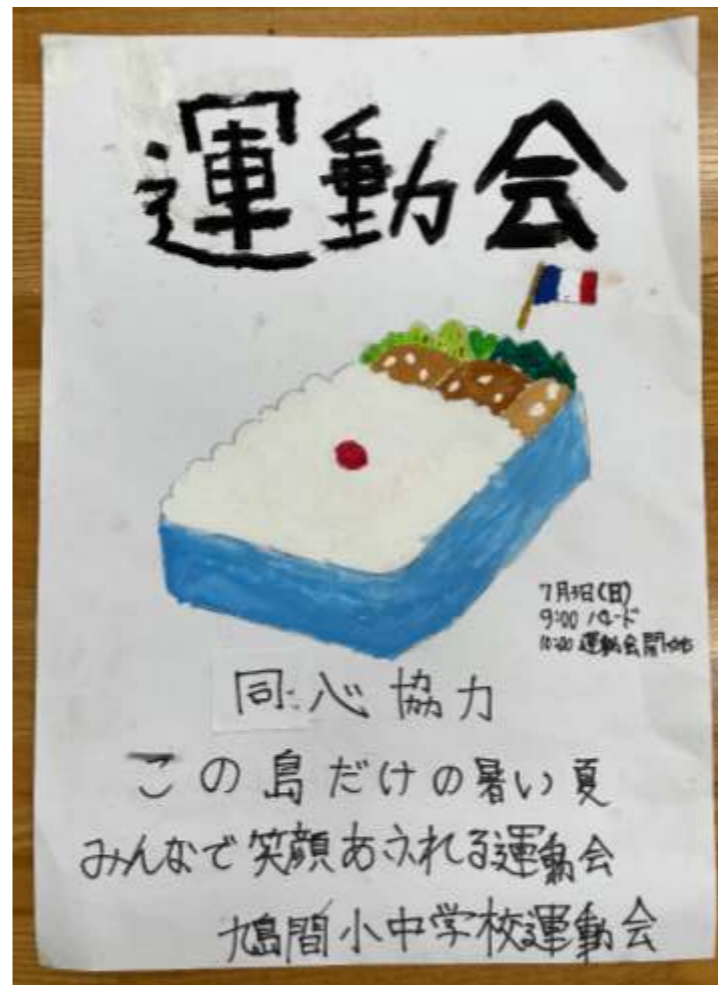 運動会
7月3日(日)
9:00 パレード
10:00 運動会開始
同心協力
この島だけの暑い夏
みんなで笑顔あふれる運動会
鳩間小中学校運動会